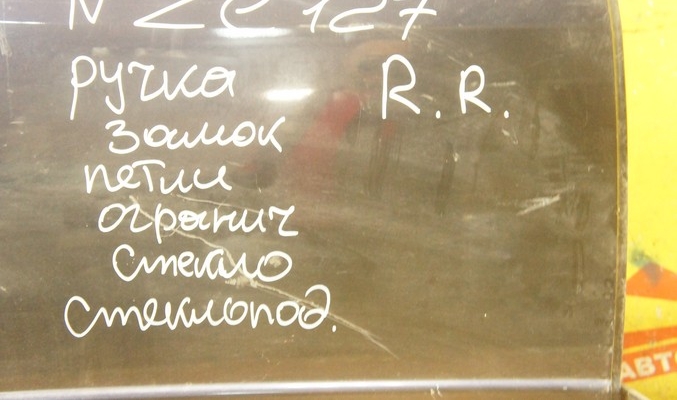 ручка R. R.
замок
петли
огранич
стекло
стеклопод.
АВТ